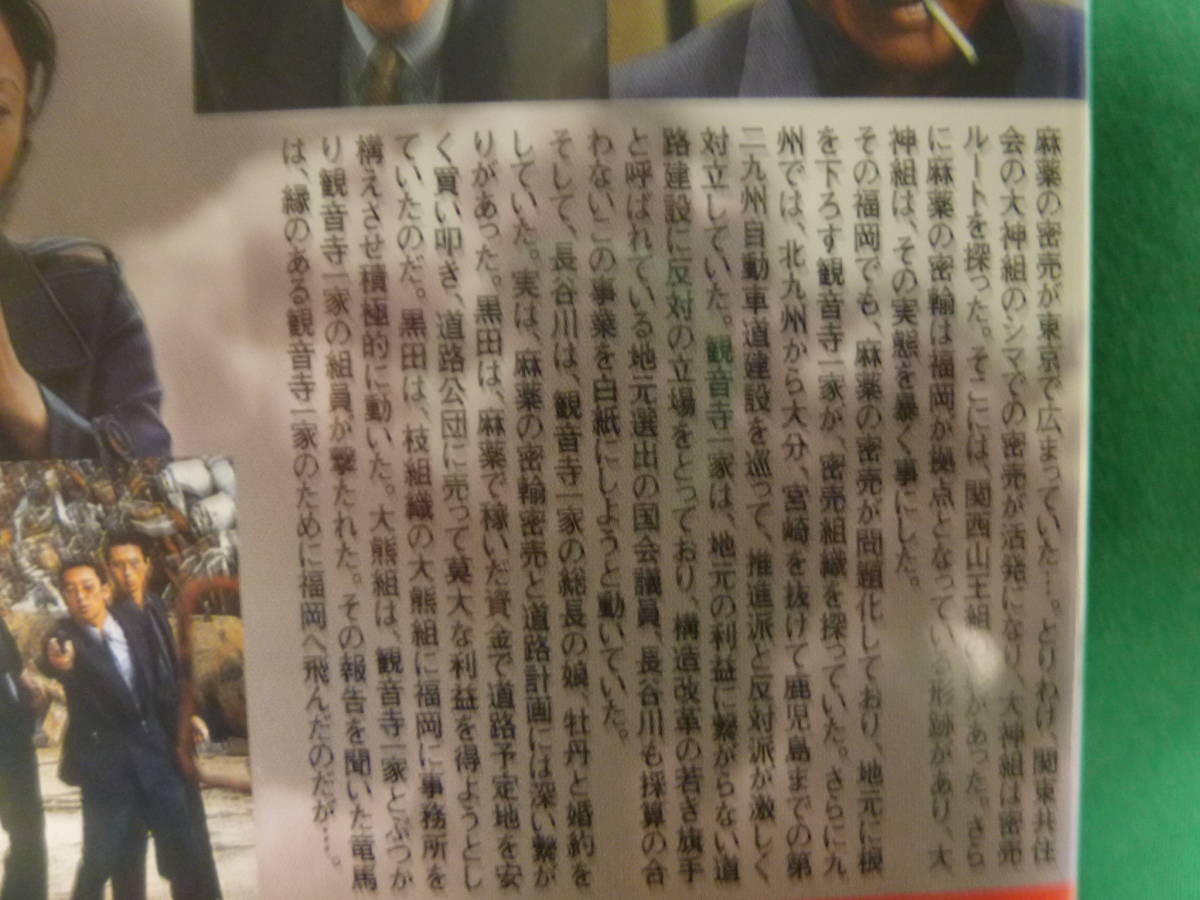 麻薬の密売が東京で広まっていた…。とりわけ、関東共住
会の大神組のシマでの密売が活発になり、大神組は密売
ルートを探った。そこには、関西山王組の があった。さら
に麻薬の密輸は福岡が拠点となっている形跡があり、大
神組は、その実態を暴く事にした。
その福岡でも、麻薬の密売が問題化しており、地元に根
を下ろす観音寺一家が、密売組織を探っていた。さらに九
州では、北九州から大分、宮崎を抜けて鹿児島までの第
二九州自動車道建設を巡って、推進派と反対派が激しく
対立していた。観音寺一家は、地元の利益に繋がらない道
路建設に反対の立場をとっており、構造改革の若き旗手
と呼ばれている地元選出の国会議員、長谷川も採算の合
わないこの事業を白紙にしようと動いていた。
そして、長谷川は、観音寺一家の総長の娘、牡丹と婚約を
していた。実は、麻薬の密輸密売と道路計画には深い繋が
りがあった。黒田は、麻薬で稼いだ資金で道路予定地を安
く買い叩き、道路公団に売って莫大な利益を得ようとし
ていたのだ。黒田は、枝組織の大熊組に福岡に事務所を
構えさせ積極的に動いた。大熊組は、観音寺一家とぶつか
り観音寺一家の組員が撃たれた。その報告を聞いた竜馬
は、縁のある観音寺一家のために福岡へ飛んだのだが…。